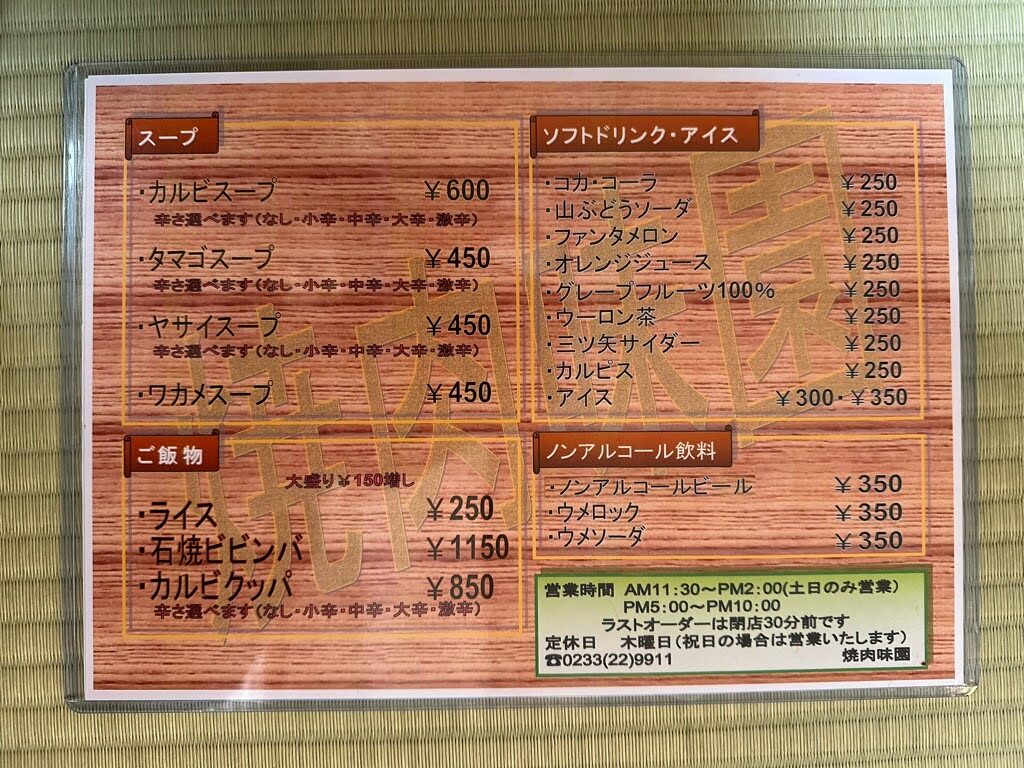 スープ
・カルビスープ ￥600
辛さ選べます(なし・小辛・中辛・大辛・激辛)
・タマゴスープ ￥450
辛さ選べます(なし・小辛・中辛・大辛・激辛)
・ヤサイスープ ￥450
辛さ選べます(なし・小辛・中辛・大辛・激辛)
・ワカメスープ ￥450
ご飯物
大盛り￥150増し
・ライス ￥250
・石焼ビビンバ ￥1150
・カルビクッパ ￥850
辛さ選べます(なし・小辛・中辛・大辛・激辛)
ソフトドリンク・アイス
・コカ・コーラ ￥250
・山ぶどうソーダ ￥250
・ファンタメロン ￥250
・オレンジジュース ￥250
・グレープフルーツ100% ￥250
・ウーロン茶 ￥250
・三ツ矢サイダー ￥250
・カルピス ￥250
・アイス ￥300・￥350
ノンアルコール飲料
・ノンアルコールビール ￥350
・ウメロック ￥350
・ウメソーダ ￥350
営業時間 AM11:30～PM2:00(土日のみ営業)
PM5:00～PM10:00
ラストオーダーは閉店30分前です
定休日 木曜日(祝日の場合は営業いたします)
☎0233(22)9911 焼肉味園
焼肉味園